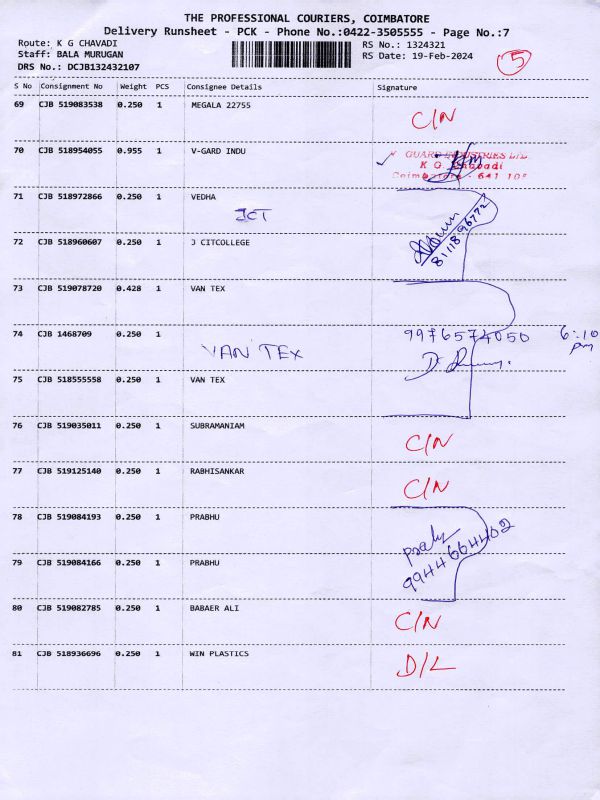 THE PROFESSIONAL COURIERS, COIMBATORE
Delivery Runsheet - PCK - Phone No.:0422-3505555 - Page No.:7
Route: K G CHAVADI RS No.: 1324321
Staff: BALA MURUGAN RS Date: 19-Feb-2024 5
DRS No.: DCJB132432107
S No Consignment No Weight PCS Consignee Details Signature
69 CJB 519083538 0.250 1 MEGALA 22755
C/N
70 CJB 518954055 0.955 1 V-GARD INDU
GUARD INDUSTRIES LTD
K G
Coimbatore - 641 105
71 CJB 518972866 0.250 1 VEDHA
JCT
8111896772
72 CJB 518960607 0.250 1 J CITCOLLEGE
73 CJB 519078720 0.428 1 VAN TEX
74 CJB 1468709 0.250 1 9976574050 6:10 pm
VAN TEX
75 CJB 518555558 0.250 1 VAN TEX
76 CJB 519035011 0.250 1 SUBRAMANIAM
C/N
77 CJB 519125140 0.250 1 RABHISANKAR
C/N
78 CJB 519084193 0.250 1 PRABHU
9944664402
79 CJB 519084166 0.250 1 PRABHU
80 CJB 519082785 0.250 1 BABAER ALI
C/N
81 CJB 518936696 0.250 1 WIN PLASTICS
D/L